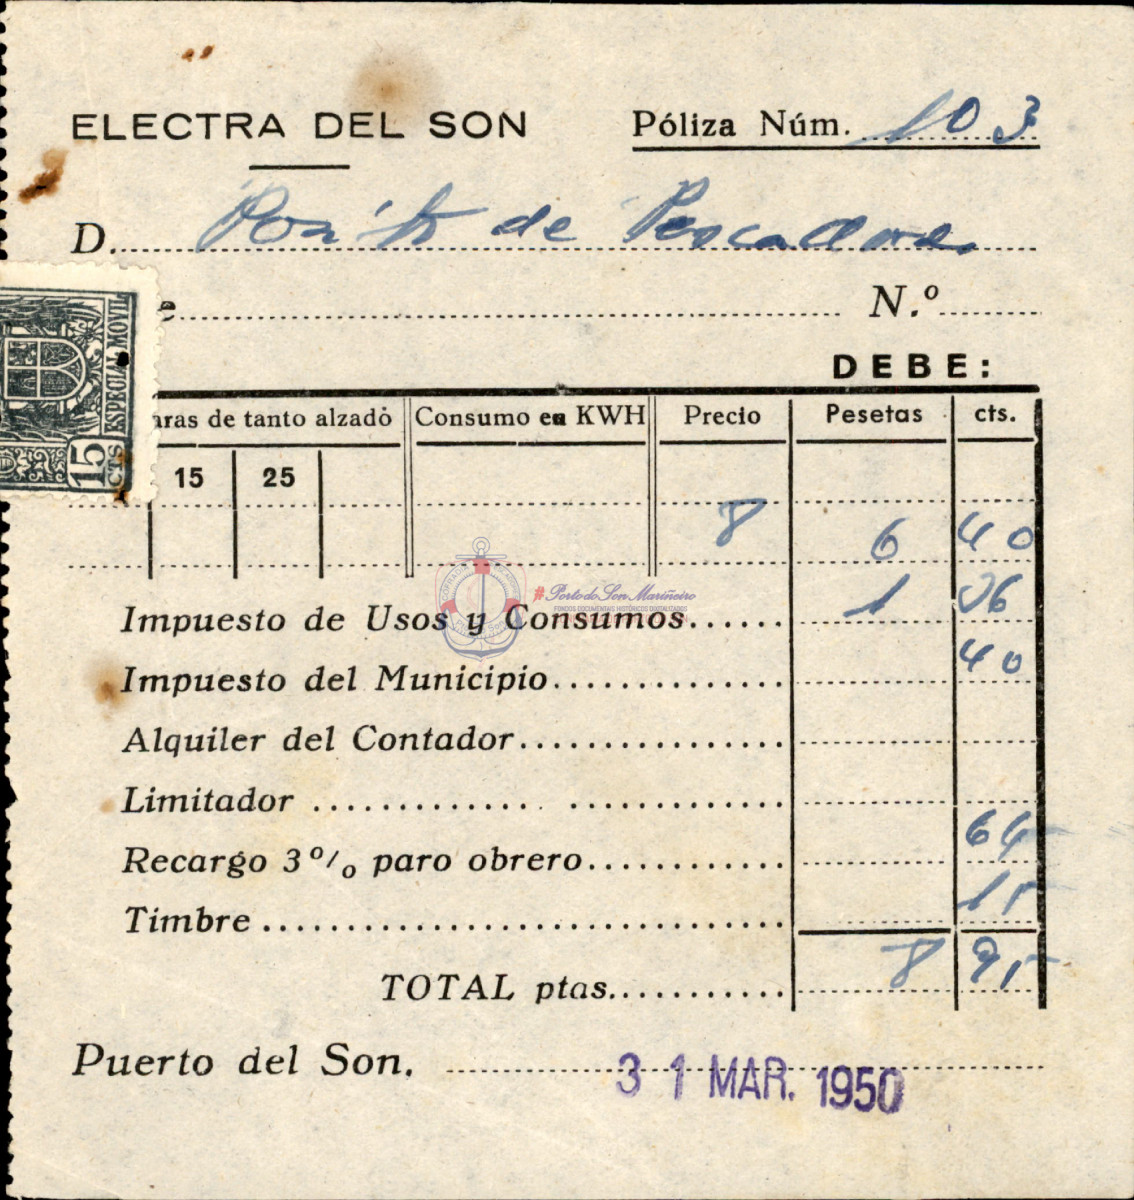 ELECTRA DEL SON
Póliza Núm. 103
D. Pósito de Pescadores
N.º
DEBE:
ESPECIAL MOVIL
15 CTS
aras de tanto alzado Consumo en KWH Precio Pesetas cts.
15 25
8 6 40
Impuesto de Usos y Consumos...... 1 06
Impuesto del Municipio............. 40
Alquiler del Contador................
Limitador ...............................
Recargo 3% paro obrero............ 64
Timbre ................................ 15
TOTAL ptas............ 8 95
Puerto del Son. 31 MAR. 1950
#Porto do Son Mariñeiro
FONDOS DOCUMENTAIS HISTÓRICOS DIXITALIZADOS